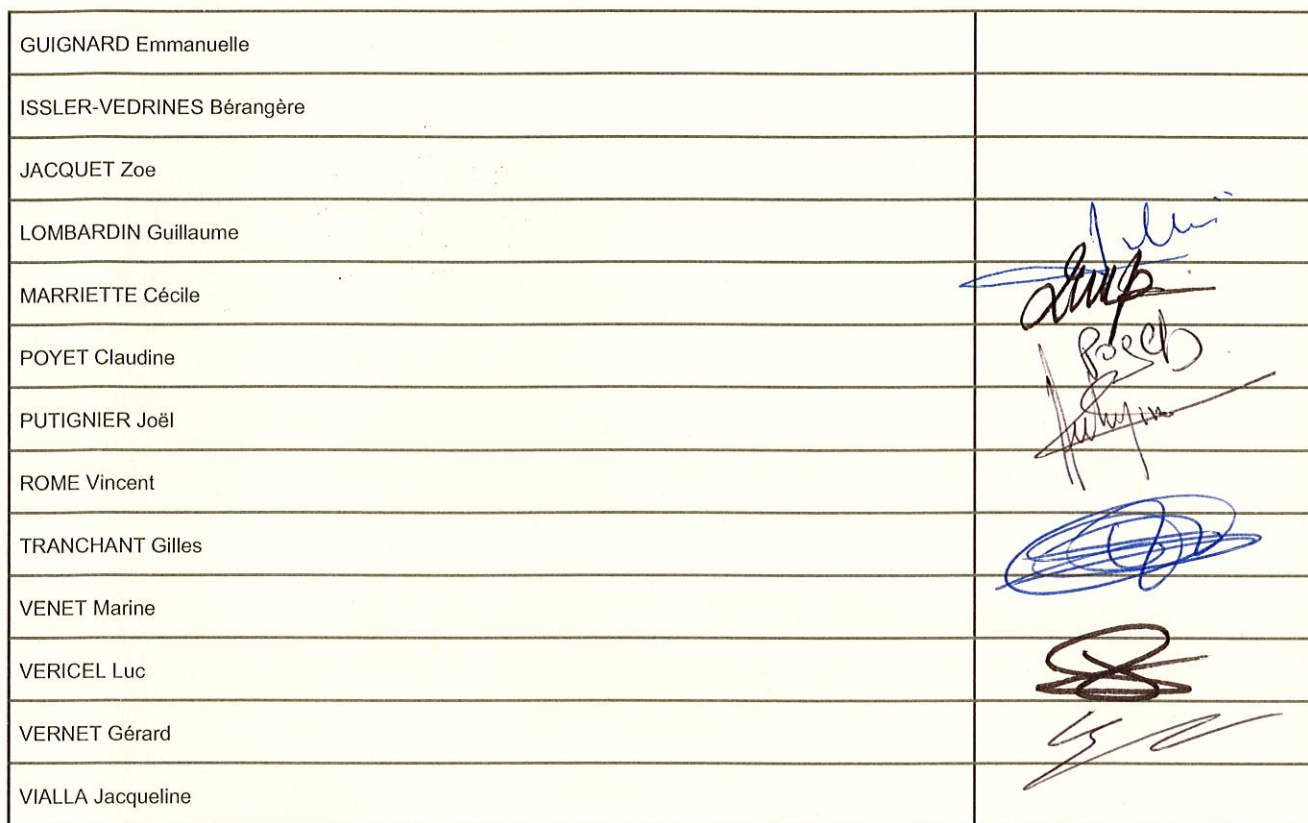 GUIGNARD Emmanuelle
ISSLER-VEDRINES Bérangère
JACQUET Zoe
LOMBARDIN Guillaume
MARRIETTE Cécile
POYET Claudine
PUTIGNIER Joël
ROME Vincent
TRANCHANT Gilles
VENET Marine
VERICEL Luc
VERNET Gérard
VIALLA Jacqueline